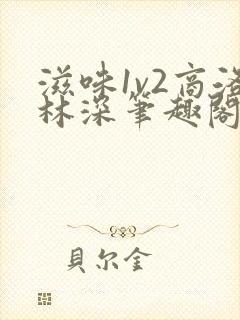 滋味1v2高洛
林深笔趣阁
貝尔金